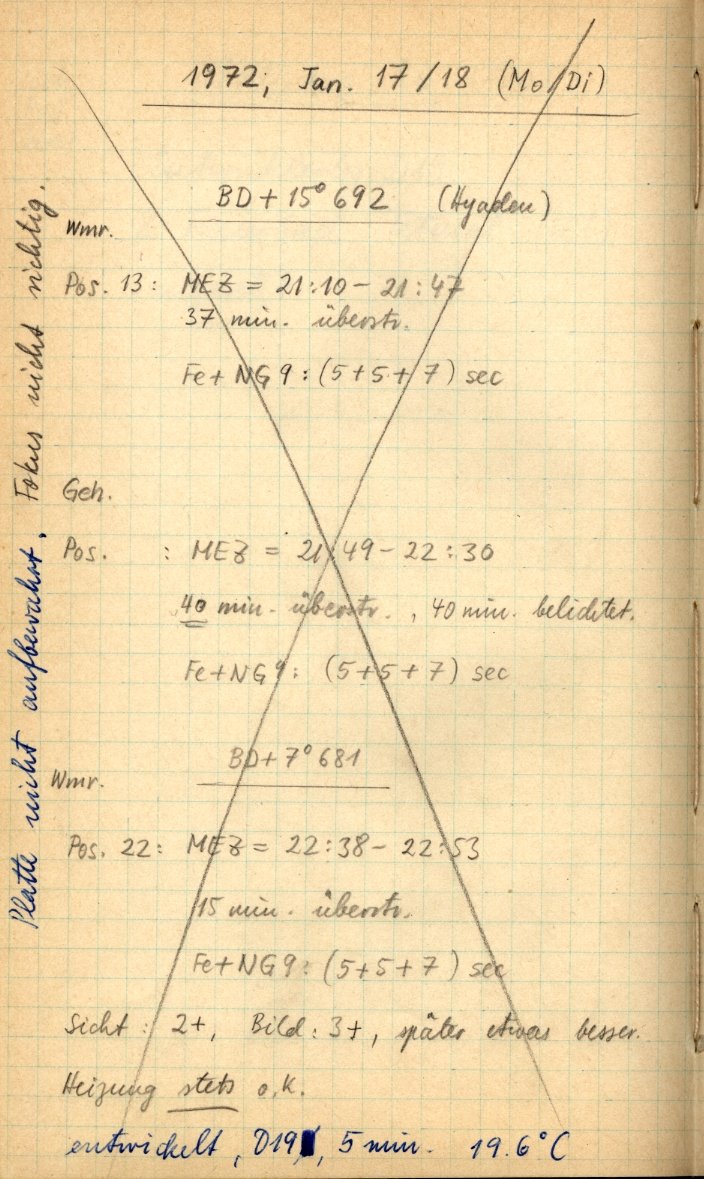 1972, Jan. 17/18 (Mo/Di)
BD+15° 692 (Hyaden)
Wmr.
Pos. 13: MEZ = 21:10 – 21:47
37 min. überstr.
Fe+NG9: (5+5+7) sec
Geh.
Pos. : MEZ = 21:49 – 22:30
40 min. überstr., 40 min. belichtet.
Fe+NG9: (5+5+7) sec
BD+7° 681
Wmr.
Pos. 22: MEZ = 22:38 – 22:53
15 min. überstr.
Fe+NG9: (5+5+7) sec
Sicht: 2+, Bild: 3+, später etwas besser.
Heizung stets o.k.
entwickelt, D19, 5 min. 19.6°C
Platte nicht aufbewahrt. Fokus nicht richtig.